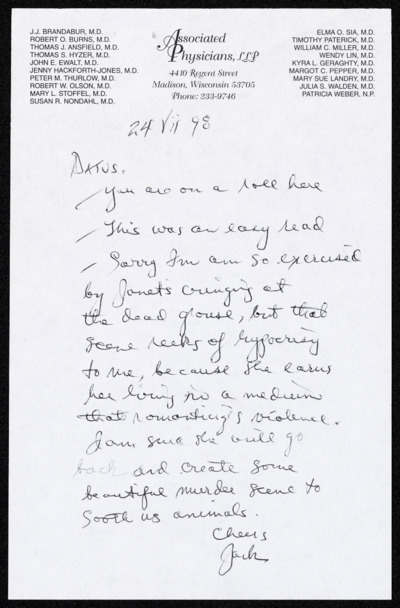 J.J. BRANDABUR, M.D.
ROBERT O. BURNS, M.D.
THOMAS J. ANSFIELD, M.D.
THOMAS S. HYZER, M.D.
JOHN E. EWALT, M.D.
JENNY HACKFORTH-JONES, M.D.
PETER M. THURLOW, M.D.
ROBERT W. OLSON, M.D.
MARY L. STOFFEL, M.D.
SUSAN R. NONDAHL, M.D.
Associated
Physicians, LLP
4410 Regent Street
Madison, Wisconsin 53705
Phone: 233-9746
ELMA O. SIA, M.D.
TIMOTHY PATERICK, M.D.
WILLIAM C. MILLER, M.D.
WENDY LIN, M.D.
KYRA L. GERAGHTY, M.D.
MARGOT C. PEPPER, M.D.
MARY SUE LANDRY, M.D.
JULIA S. WALDEN, M.D.
PATRICIA WEBER, N.P.
24 VII 98
DATUS,
- You are on a roll here
- This was an easy read
- Sorry I'm am so exercised
by Janet's cringing at
the dead grouse, but that
scene reeks of hypocrisy
to me, because she earns
her living in a medium
that romanticizes violence.
I am sure she will go
back and create some
beautiful murder scene to
sooth us animals.
Cheers
Jack